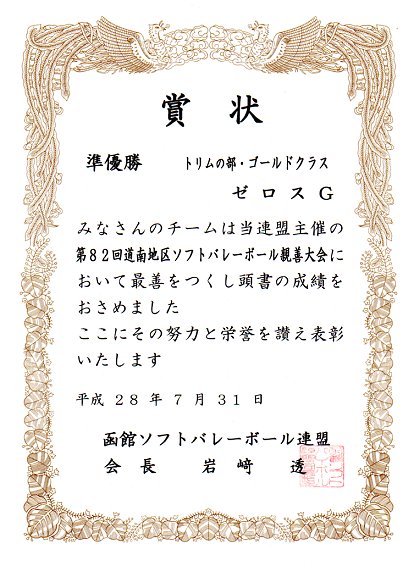 賞状
準優勝 トリムの部・ゴールドクラス
ゼロスG
みなさんのチームは当連盟主催の
第82回道南地区ソフトバレーボール親善大会に
おいて最善をつくし頭書の成績を
おさめました
ここにその努力と栄誉を讃え表彰
いたします
平成 28 年 7 月 31 日
函館ソフトバレーボール連盟
会長 岩﨑 透